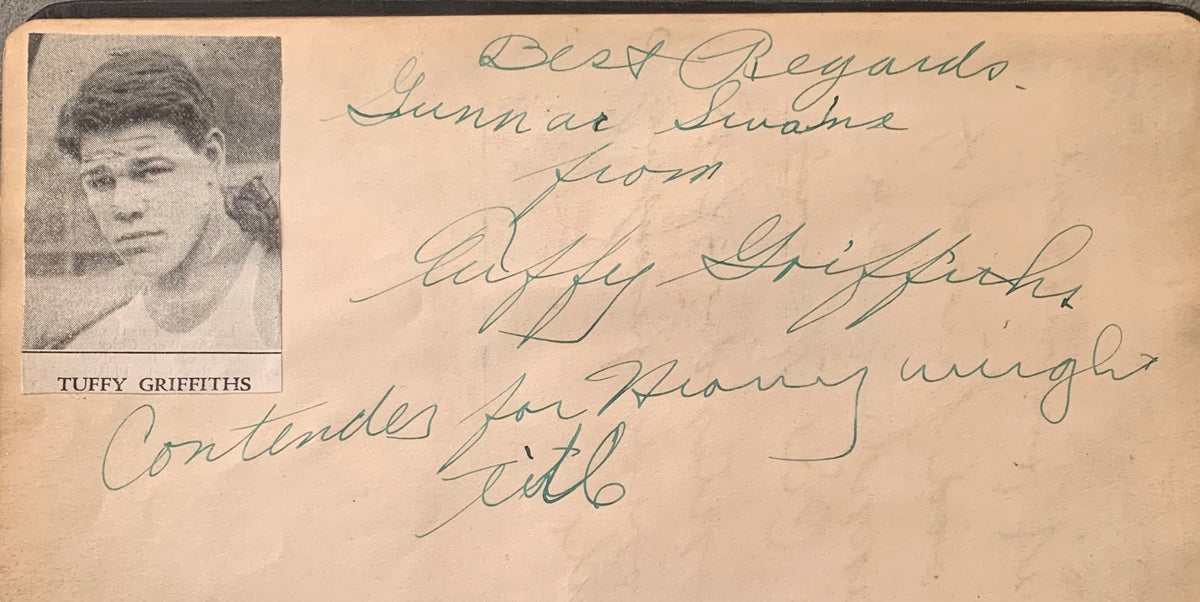 Best Regards.
Gunnar Swaine
from
Tuffy Griffiths
TUFFY GRIFFITHS
Contender for Heavy weight
title